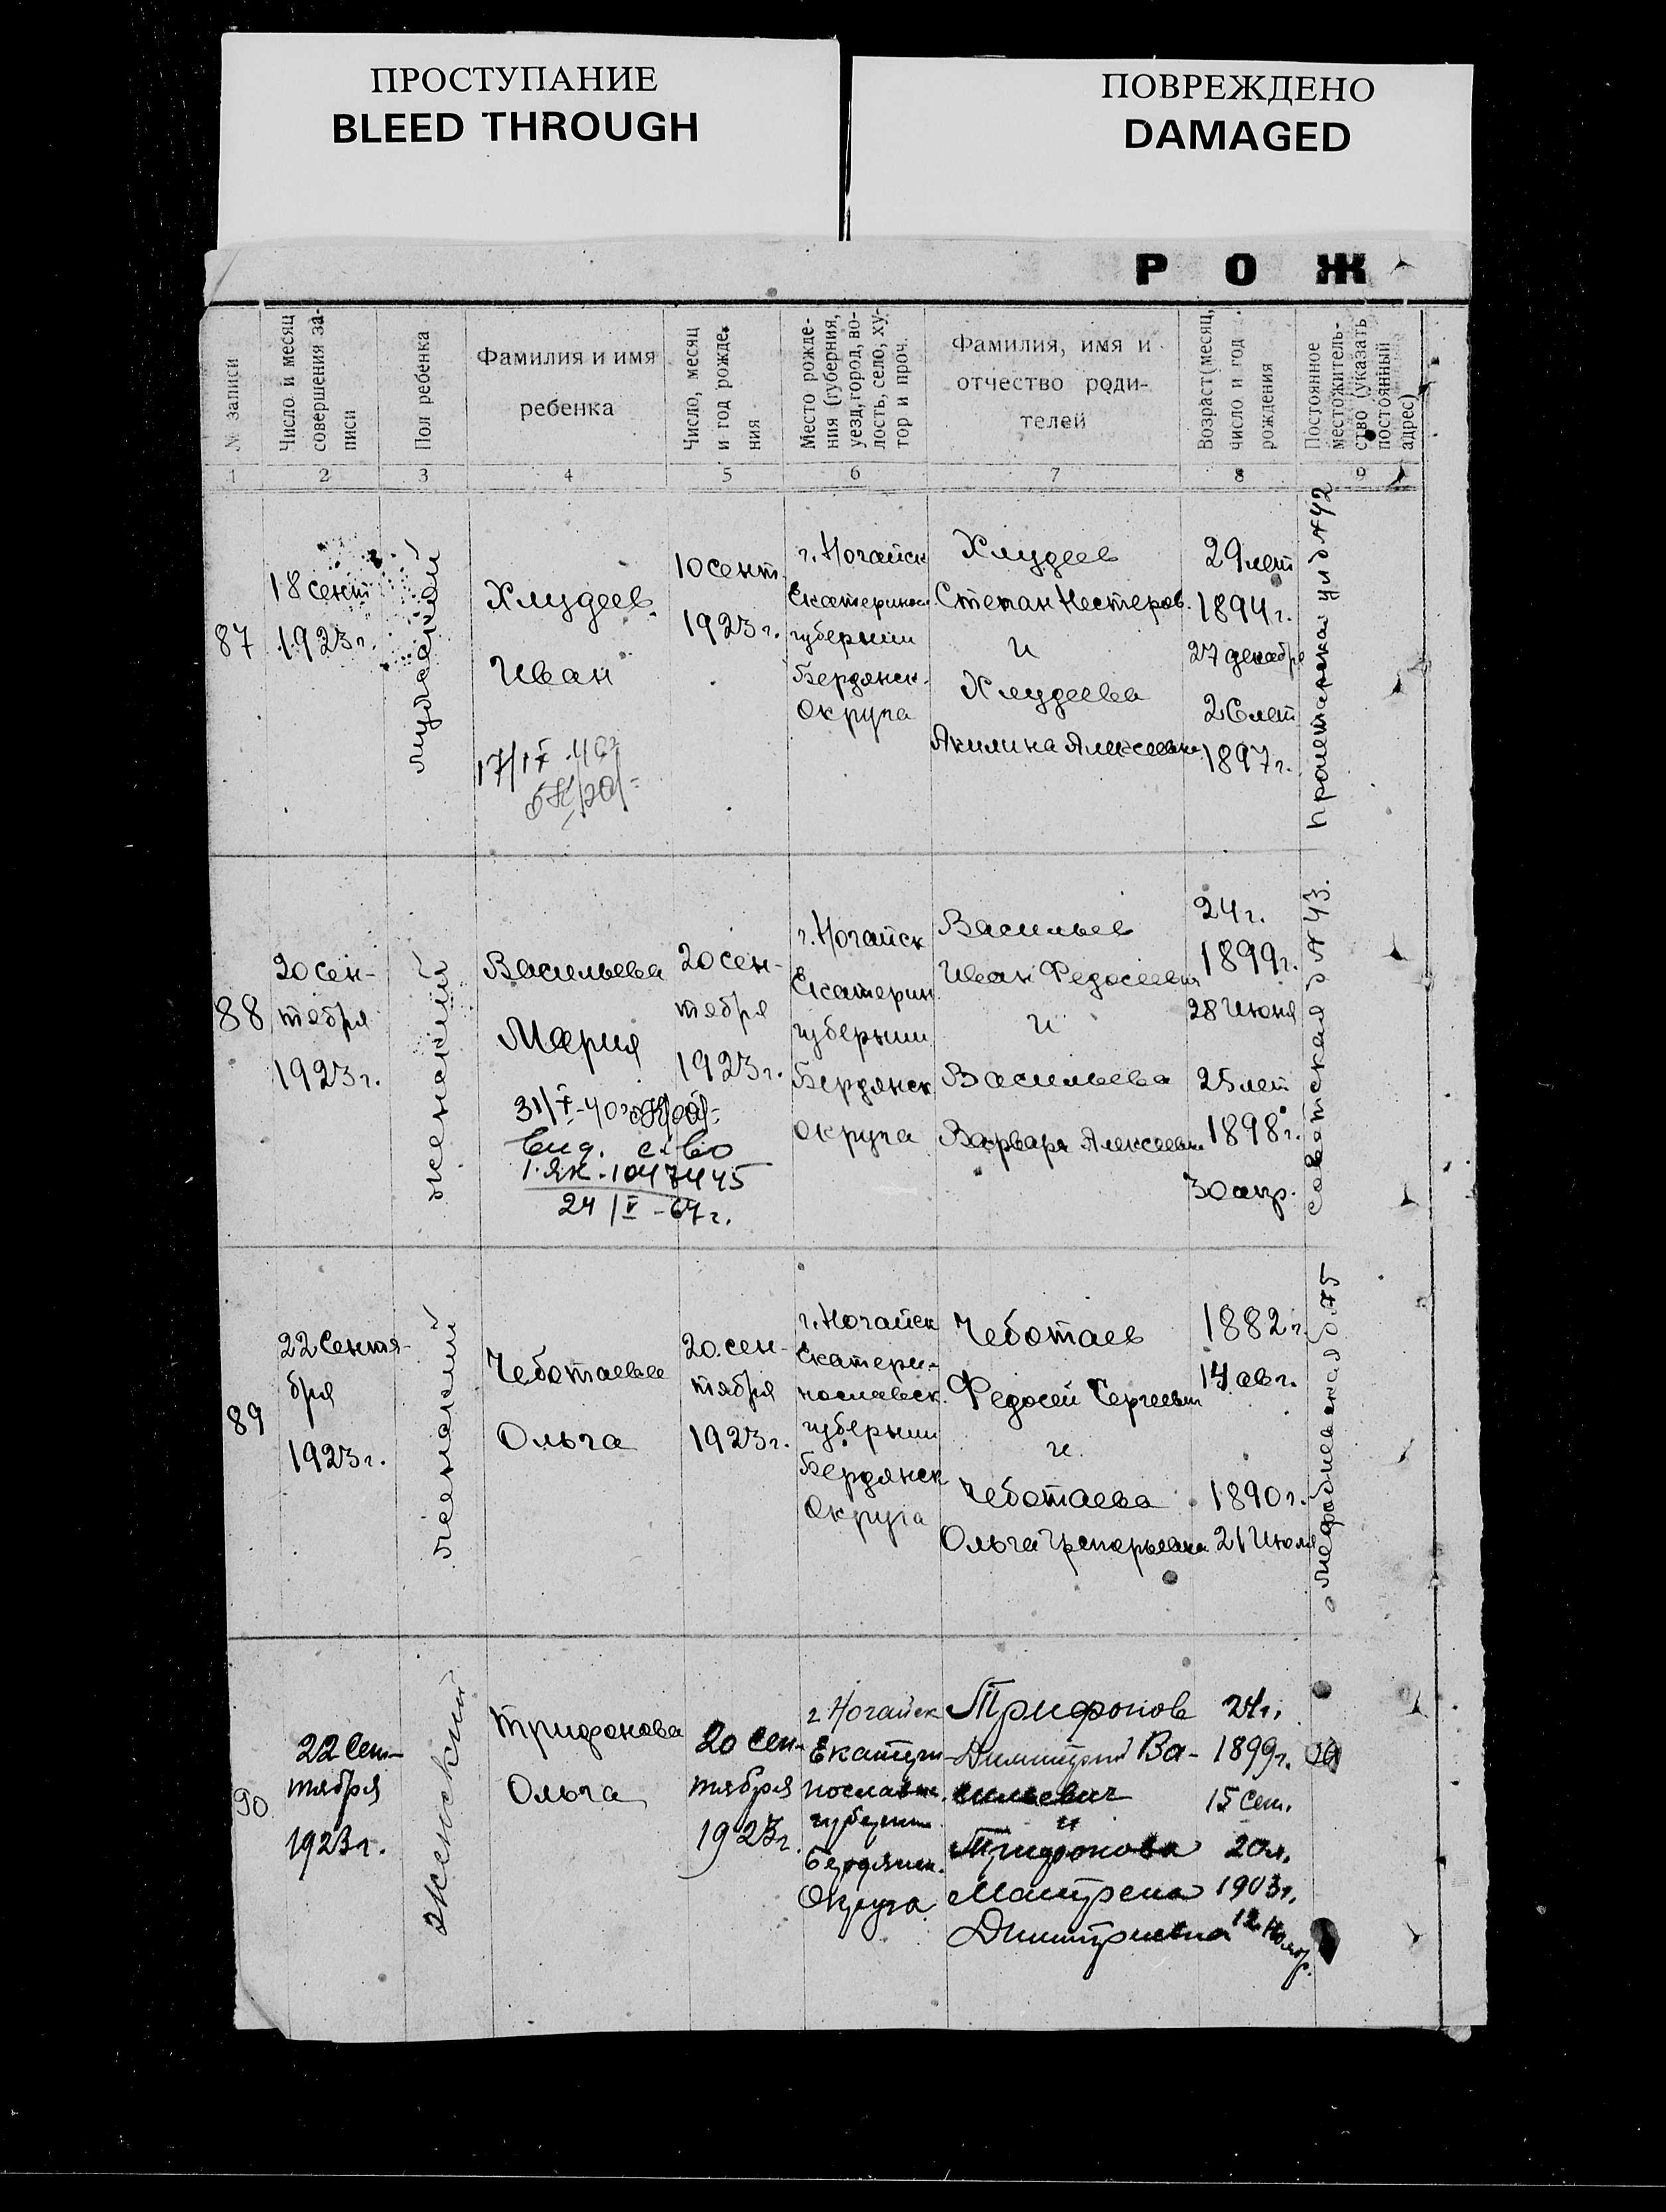 ПРОСТУПАНИЕ
BLEED THROUGH
ПОВРЕЖДЕНО
DAMAGED
Р О Ж
№ записи
Число и месяц
совершения за-
писи
Пол ребенка
Фамилия и имя
ребенка
Число, месяц
и год рожде-
ния
Место рожде-
ния (губерния,
уезд, город, во-
лость, село, ху-
тор и проч.
Фамилия, имя и
отчество роди-
телей
Возраст (месяц,
число и год
рождения
Постоянное
местожитель-
ство (указать
постоянный
адрес)
1 2 3 4 5 6 7 8 9
87
18 сент
1923 г.
мужеской
Хлудеев
Иван
17/IX-40г
10 сент.
1923 г.
г. Ногайск
Екатеринос
губернии
Бердянск.
Округа
Хлудеев
Степан Нестеров.
и
Хлудеева
Акилина Алексеевна
29 лет
1894 г.
27 декабря
26 лет
1897 г.
пролетарская ул д № 42
88
20 сен-
тября
1923 г.
женский
Васильева
Мария
31/X-40г
Выд. св-во
1-ЯК-1047445
24/V-67 г.
20 сен-
тября
1923 г.
г. Ногайск
Екатерин
губернии
Бердянск
округа
Васильев
Иван Федосеевич
и
Васильева
Варвара Алексеевн
24 г.
1899 г.
28 Июня
25 лет
1898 г.
30 апр.
советская д № 43.
89
22 Сентя-
бря
1923 г.
женский
Чеботаева
Ольга
20 сен-
тября
1923 г.
г. Ногайск
Екатери-
нославск.
губернии
Бердянск
Округа
Чеботаев
Федосей Сергеевич
и
Чеботаева
Ольга Григорьевна
1882 г.
14 авг.
1890 г.
21 Июля
90
22 Сен-
тября
1923 г.
женский
Трифонова
Ольга
20 Сен-
тября
1923 г.
г. Ногайск
Екатери-
нославск.
губернии
Бердянск.
Округа
Трифонов
Димитрий Ва-
сильевич
и
Трифонова
Матрена
Димитриевна
24 г.
1899 г.
15 Сен.
20 л.
1903 г.
12 Нояб.